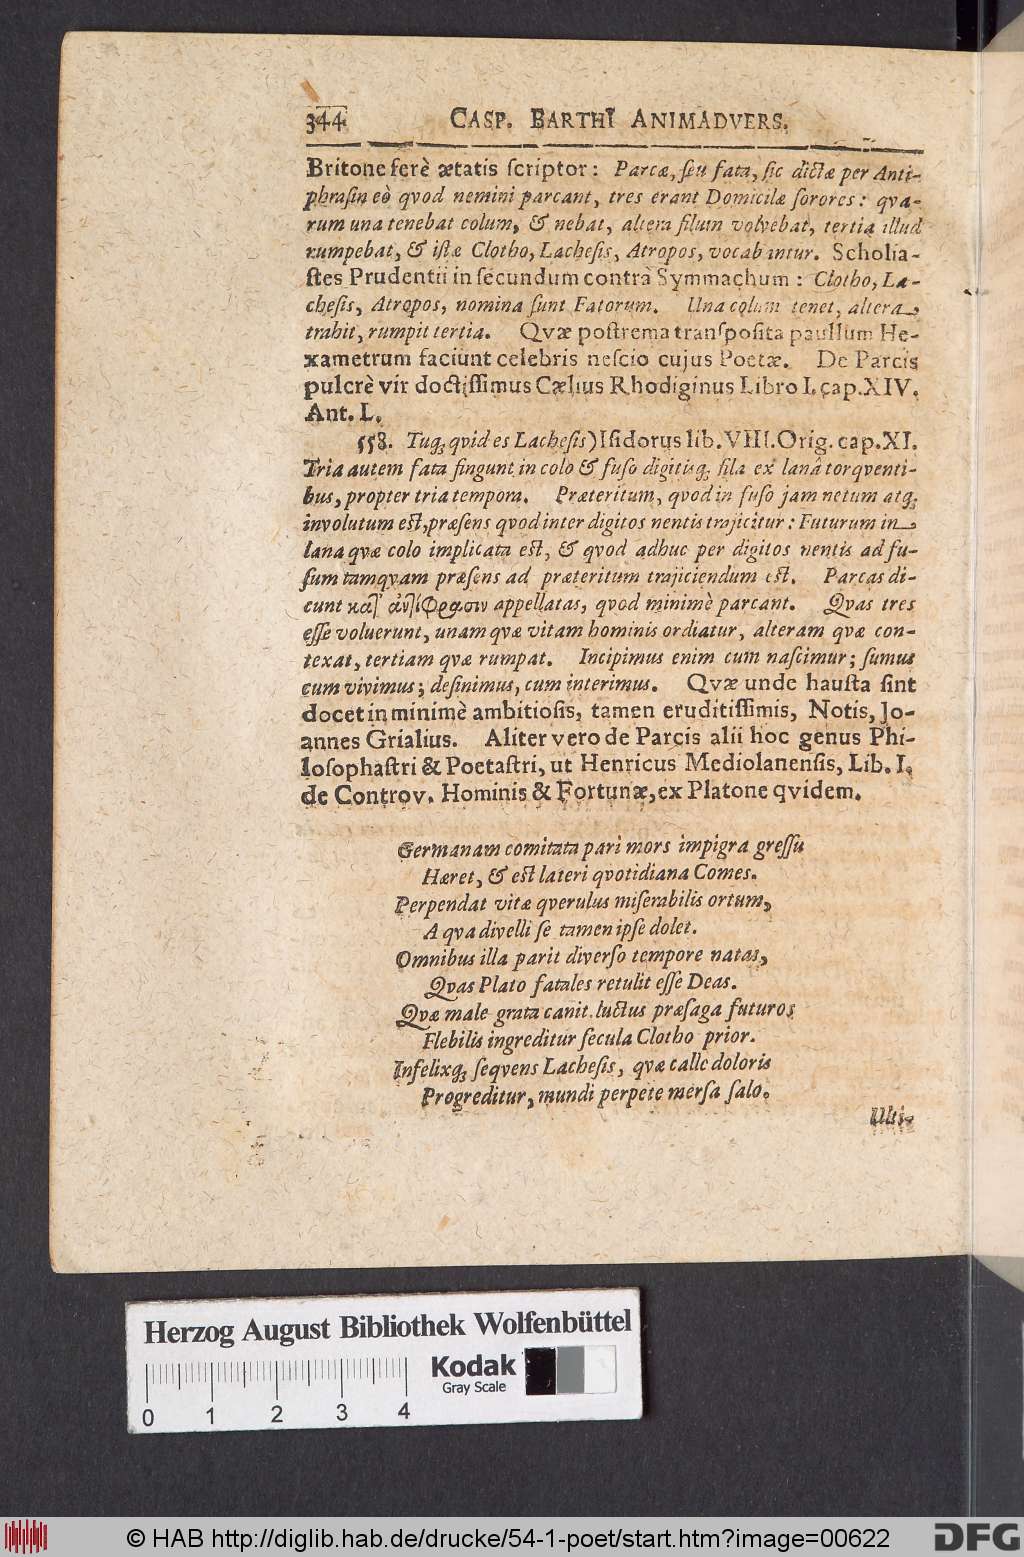 344 CASP. BARTHI ANIMADVERS.
Britone ferè ætatis ſcriptor: Parcæ, ſeu fata, ſic dictæ per Anti-
phraſin eò qvod nemini parcant, tres erant Domicilæ ſorores: qva-
rum una tenebat colum, & nebat, altera filum volvebat, tertia illud
rumpebat, & iſtæ Clotho, Lacheſis, Atropos, vocabantur. Scholia-
ſtes Prudentii in ſecundum contrà Symmachum: Clotho, La-
cheſis, Atropos, nomina ſunt Fatorum. Una colum tenet, altera
trahit, rumpit tertia. Qvæ poſtrema tranſpoſita paullum He-
xametrum faciunt celebris neſcio cujus Poetæ. De Parcis
pulcrè vir doctiſſimus Cælius Rhodiginus Libro I. cap. XIV.
Ant. L.
558. Tuq; qvid es Lacheſis) Iſidorus lib. VIII. Orig. cap. XI.
Tria autem fata fingunt in colo & fuſo digitiſq; fila ex lanâ torqventi-
bus, propter tria tempora. Præteritum, qvod in fuſo jam netum atq;
involutum eſt, præſens qvod inter digitos nentis trajicitur: Futurum in
lana qvæ colo implicata eſt, & qvod adhuc per digitos nentis ad fu-
ſum tamqvam præſens ad præteritum trajiciendum eſt. Parcas di-
cunt κατ' ἀντίφρασιν appellatas, qvod minimè parcant. Qvas tres
eſſe voluerunt, unam qvæ vitam hominis ordiatur, alteram qvæ con-
texat, tertiam qvæ rumpat. Incipimus enim cum naſcimur; ſumus
cum vivimus; deſinimus, cum interimus. Qvæ unde hauſta ſint
docet in minimè ambitioſis, tamen eruditiſſimis, Notis, Jo-
annes Grialius. Aliter vero de Parcis alii hoc genus Phi-
loſophaſtri & Poetaſtri, ut Henricus Mediolanenſis, Lib. I.
de Controv. Hominis & Fortunæ, ex Platone qvidem.
Germanam comitata pari mors impigra greſſu
Hæret, & eſt lateri qvotidiana Comes.
Perpendat vitæ qverulus miſerabilis ortum,
A qva divelli ſe tamen ipſe dolet.
Omnibus illa parit diverſo tempore natas,
Qvas Plato fatales retulit eſſe Deas.
Qvæ male grata canit luctus præſaga futuros
Flebilis ingreditur ſecula Clotho prior.
Infelixq; ſeqvens Lacheſis, qvæ calle doloris
Progreditur, mundi perpete merſa ſalo.
Ulti-
Herzog August Bibliothek Wolfenbüttel
Kodak
Gray Scale
0 1 2 3 4
© HAB http://diglib.hab.de/drucke/54-1-poet/start.htm?image=00622
DFG